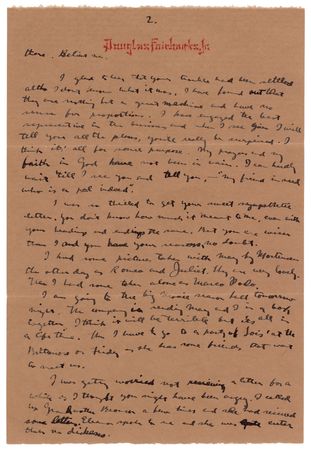 2.
Douglas Fairbanks, Jr.
there. Believe me.
I glad to hear that your trouble had been settled
altho I don't know what it was. I have found out that
they are nothing but a great machine and have no
sense for proportion. I have engaged the best
representative in the business and when I see you I will
tell you all the plans, you'll be surprised. I
think it's all for some purpose. My prayers and my
faith in God have not been in vain. I can hardly
wait till I see you and tell you, "my friend in need
who is a pal indeed".
I was so thrilled to get your sweet sympathetic
letter. You don't know how much it meant to me, even with
your heading and endings the same. But you are wiser
than I and you have your reasons, no doubt.
I had some pictures taken with May by
the other day as Romeo and Juliet. They are very lovely.
Then I had some taken alone as Marco Polo.
I am going to the big Movie ball tomorrow
night. The company is sending May and I in a box
together. I think it will be terrible but it's all in
a life time. Then I have to go to a party of Lois' at the
Biltmore on Friday as she has some friends that want
to meet us.
I was getting worried not receiving a letter for a
while as I thought you might have been angry. I called
up Grandmother a few times and she had received
some letters. Eleanor spoke to me and she was quite
than no dickens.